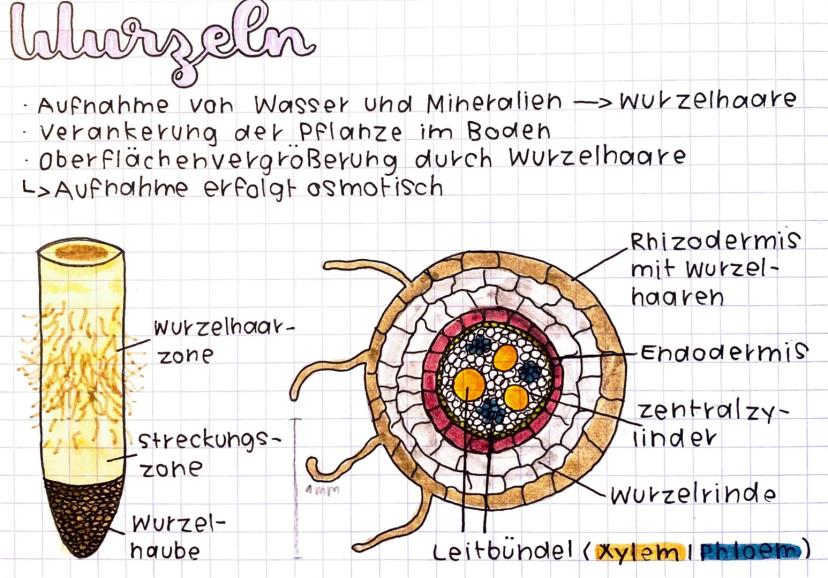 Wurzeln
· Aufnahme von Wasser und Mineralien —> Wurzelhaare
· Verankerung der Pflanze im Boden
· Oberflächenvergrößerung durch Wurzelhaare
↳ Aufnahme erfolgt osmotisch
Wurzelhaar-
zone
Streckungs-
zone
Wurzel-
haube
Rhizodermis
mit Wurzel-
haaren
Endodermis
Zentralzy-
linder
Wurzelrinde
Leitbündel (Xylem | Phloem)
1mm